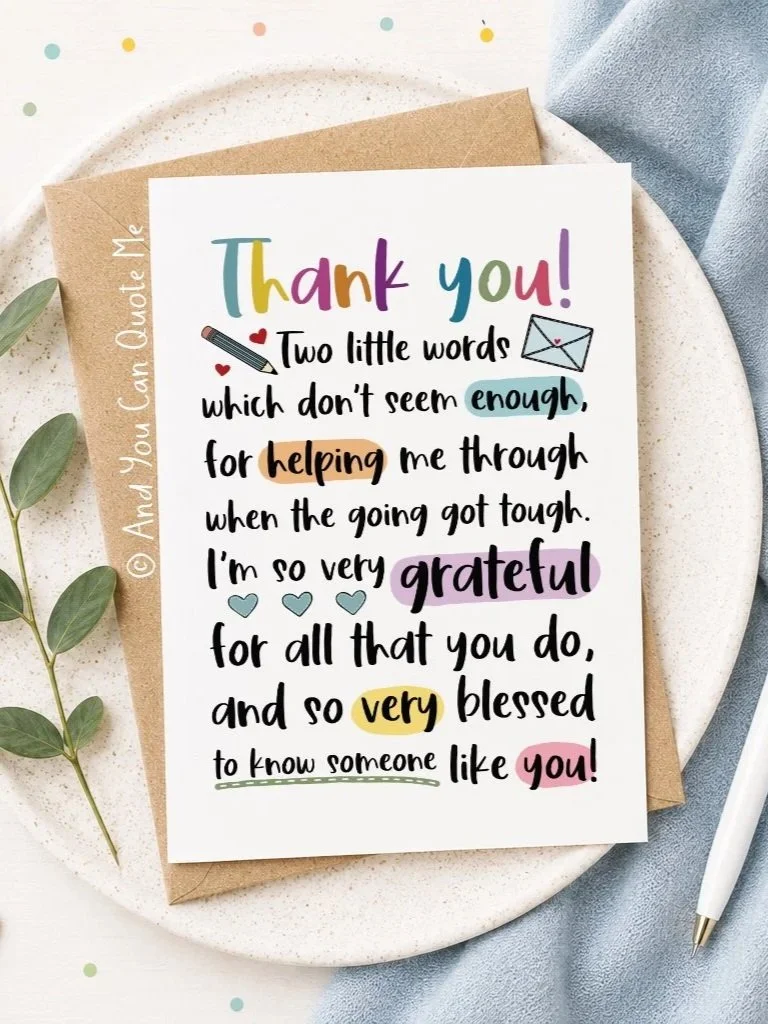 Thank you!
Two little words
which don't seem enough,
for helping me through
when the going got tough.
I'm so very grateful
for all that you do,
and so very blessed
to know someone like you!
© And You Can Quote Me